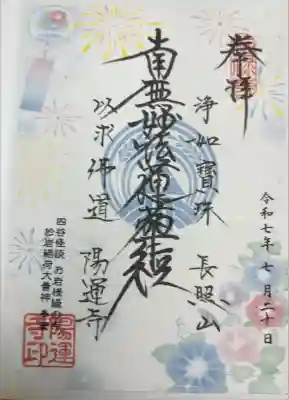 奉拝
浄如寶珠 長照山
南無妙法蓮華経
以求佛道 陽運寺
令和七年七月二十日
四谷怪談 お岩様縁の寺
妙岩稲荷大善神
陽運寺印